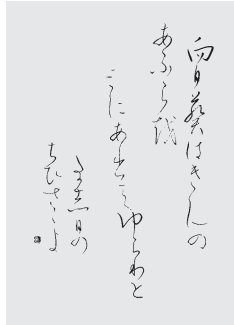 向日葵はきんの
あふらを
みにあひてゆらりと
たかし日の
ちひさゝよ